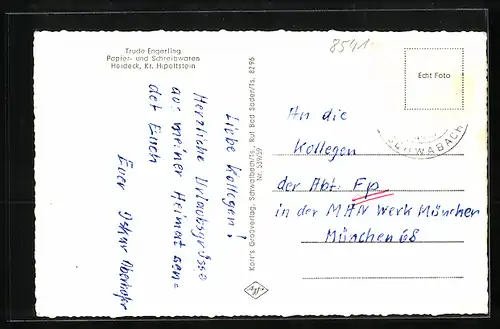 8541
Trude Engerling
Papier- und Schreibwaren
Heideck, Kr. Hipoltstein
Echt Foto
SCHWABACH
Liebe Kollegen!
Herzliche Urlaubsgrüsse
aus meiner Heimat sen=
det Euch
Euer Oskar
Korr's Großverlag, Schwalbach/Ts., Ruf Bad Soden/Ts. 8296
Nr. 55959
An die
Kollegen
der Abt. Fp
in der MAN Werk München
München 68
Agfa